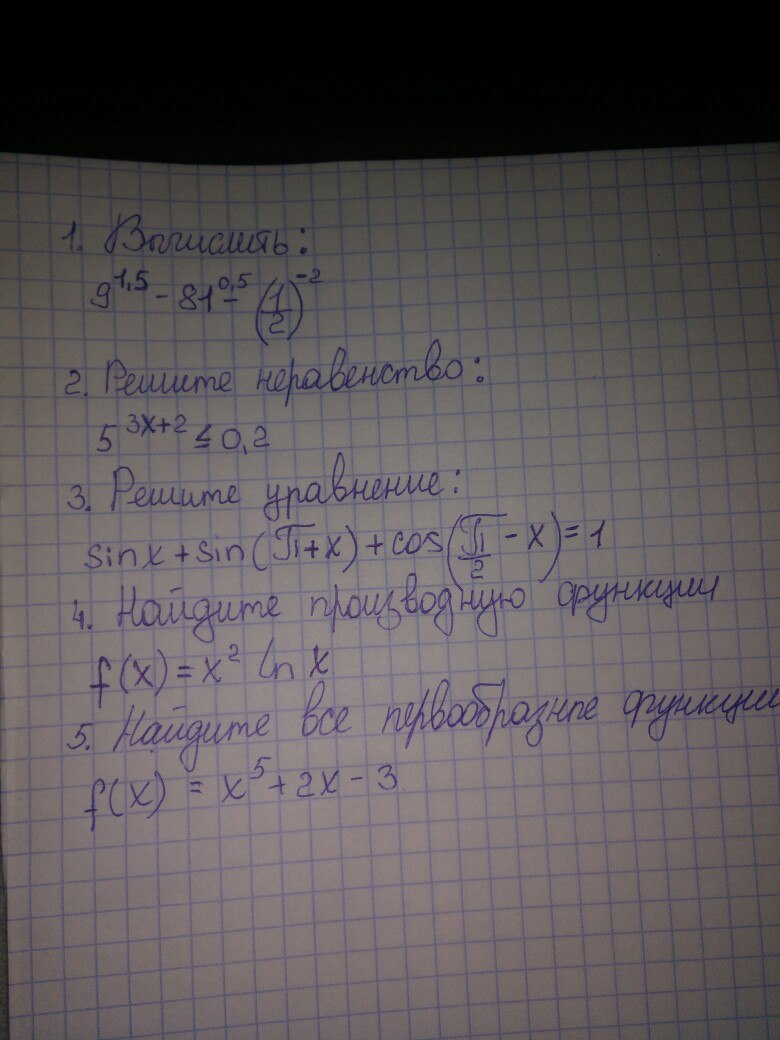 1. Вычислить:
9^1,5 - 81^0,5 - (1/2)^-2
2. Решите неравенство:
5^3x+2 ≤ 0,2
3. Решите уравнение:
sin x + sin(π+x) + cos(π/2 - x) = 1
4. Найдите производную функции
f(x) = x^2 ln x
5. Найдите все первообразные функции
f(x) = x^5 + 2x - 3